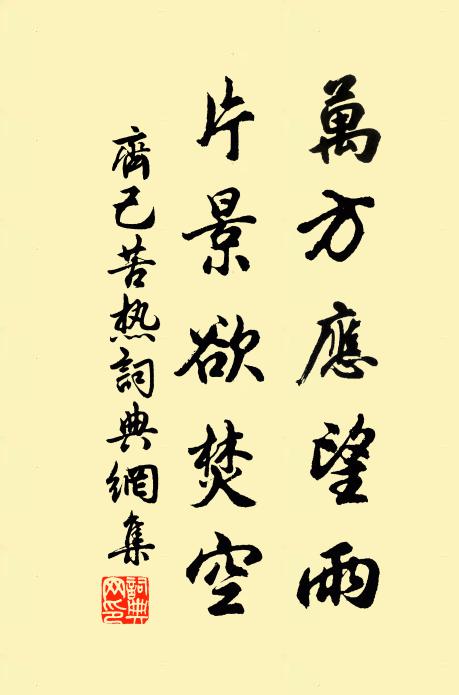 萬方應望雨
片景欲焚空
齊己苦热詞典網集
詞典網印